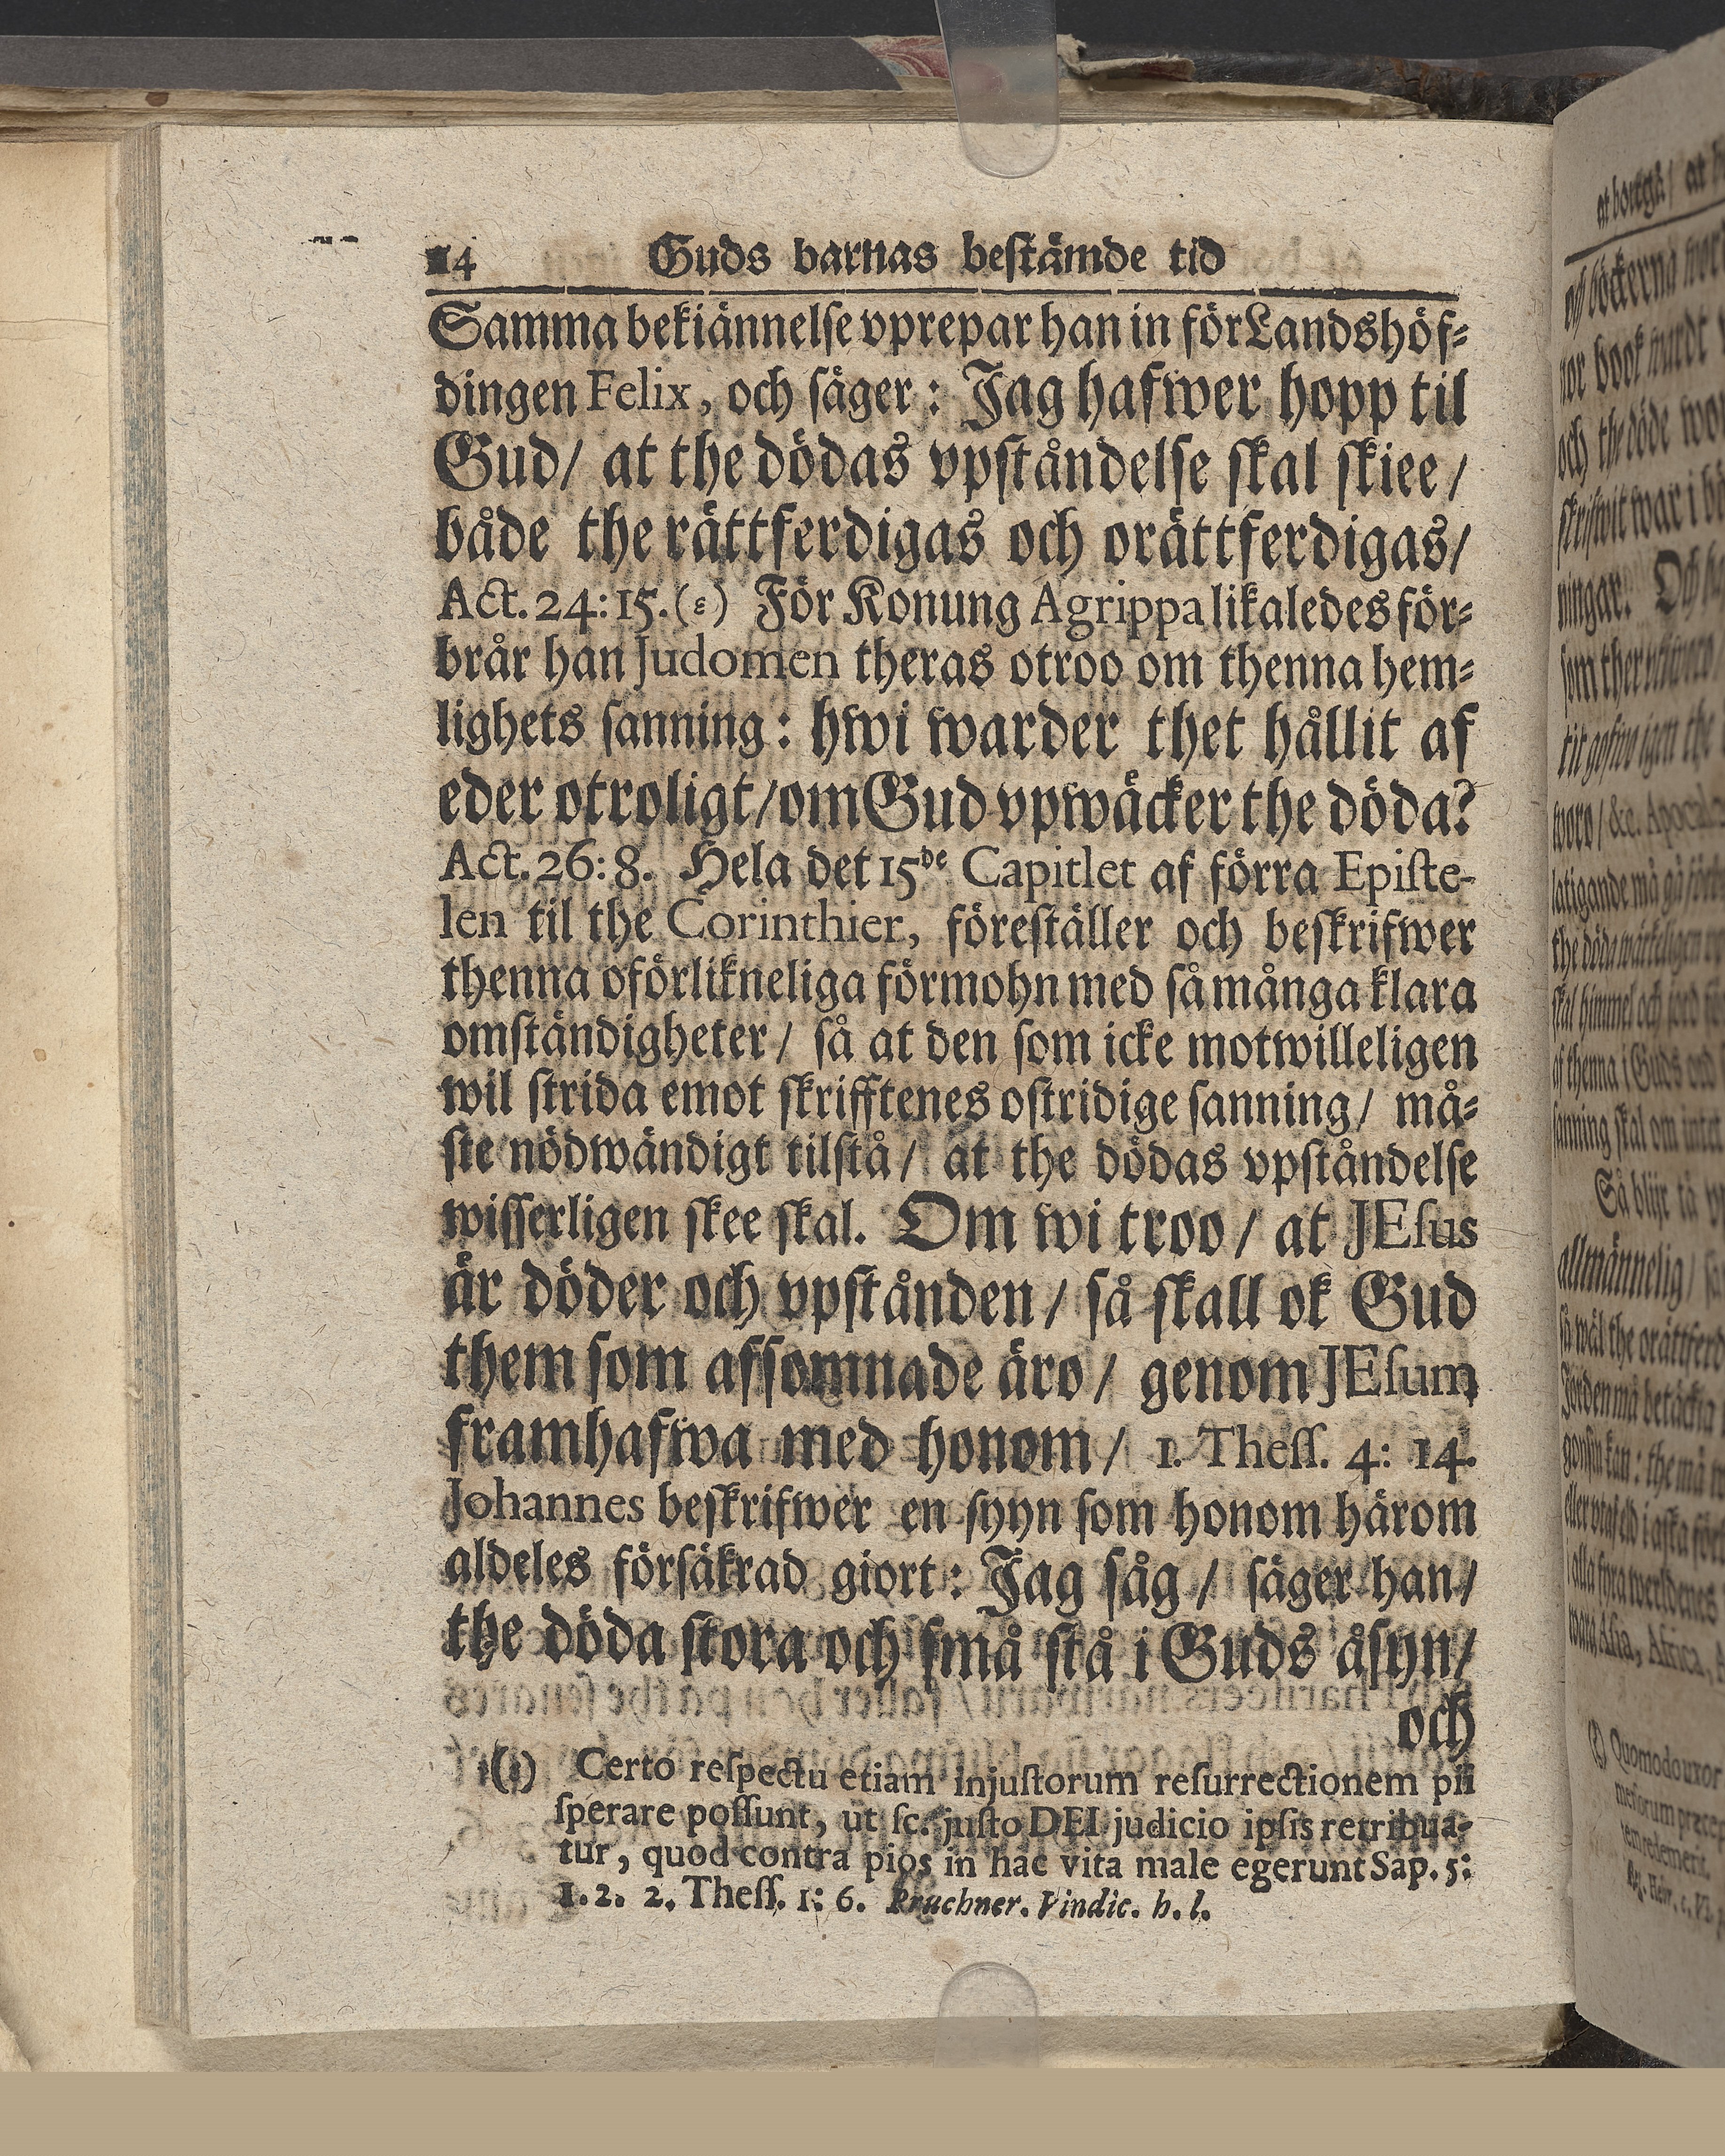 14 Guds barnas bestämde tid
Samma bekiännelse vprepar han in för Landshöf-
dingen Felix, och säger: Jag hafwer hopp til
Gud/ at the dödas vpståndelse skal skiee/
både the rättferdigas och orättferdigas/
Act. 24: 15. (ε) För Konung Agrippa likaledes för-
brår han Judomen theras otroo om thenna hem-
lighets sanning: hwi warder thet hållit af
eder otroligt/ om Gud vpwäcker the döda?
Act. 26: 8. Hela det 15de Capitlet af förra Episte-
len til the Corinthier, föreställer och beskrifwer
thenna oförlikneliga förmohn med så många klara
omständigheter/ så at den som icke motwilleligen
wil strida emot skrifftenes ostridige sanning/ må-
ste nödwändigt tilstå/ at the dödas vpståndelse
wisserligen skee skal. Om wi troo/ at JEsus
är döder och vpstånden/ så skall ok Gud
them som afsomnade äro/ genom JEsum
framhafwa med honom/ 1. Thess. 4: 14.
Johannes beskrifwer en syyn som honom härom
aldeles försäkrad giort: Jag såg/ säger han/
the döda stora och små stå i Guds åsyn/
och
(ε) Certo respectu etiam injustorum resurrectionem pii
sperare possunt, ut sc. justo DEI judicio ipsis retribua-
tur, quod contra pios in hac vita male egerunt Sap. 5:
1. 2. 2. Thess. 1: 6. Pruchner. Vindic. h. l.